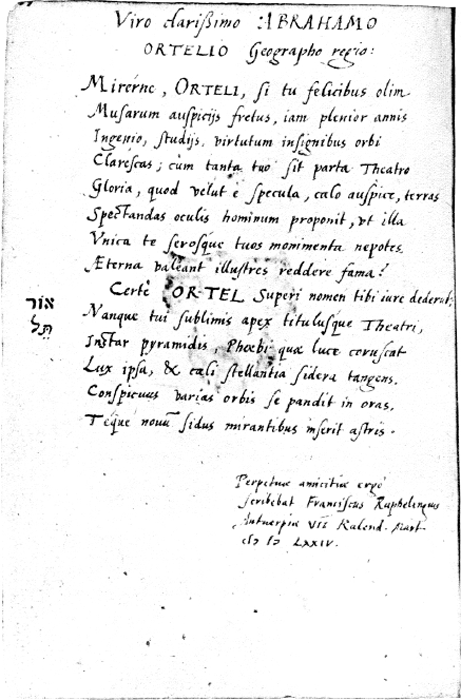 Viro clarißimo ABRAHAMO
ORTELIO Geographo regio:
Mirérne, ORTELI, si tu felicibus olim
Musarum auspicijs fretus, iam plenior annis
Ingenio, studijs, virtutum insignibus orbi
Clarescas; cùm tanta tuo sit parta Theatro
Gloria, quod velut è specula, cælo auspice, terras
Spectandas oculis hominum proponit, vt illa
Vnica te serosque tuos monimenta nepotes
Æterna valeant illustres reddere fama?
Certè OR-TEL Superi nomen tibi iure dederut:
אור
תל
Nanque tui sublimis apex titulusque Theatri,
Instar pyramidis, Phœbi quæ luce coruscat
Lux ipsa, & cæli stellantia sidera tangens,
Conspicuus varias orbis se pandit in oras,
Téque nouū sidus mirantibus inserit astris.
Perpetuæ amicitiæ ergò
scribebat Franciscus Raphelengius
Antuerpiæ VII Kalend. Mart.
cIɔ Iɔ LXXIV.